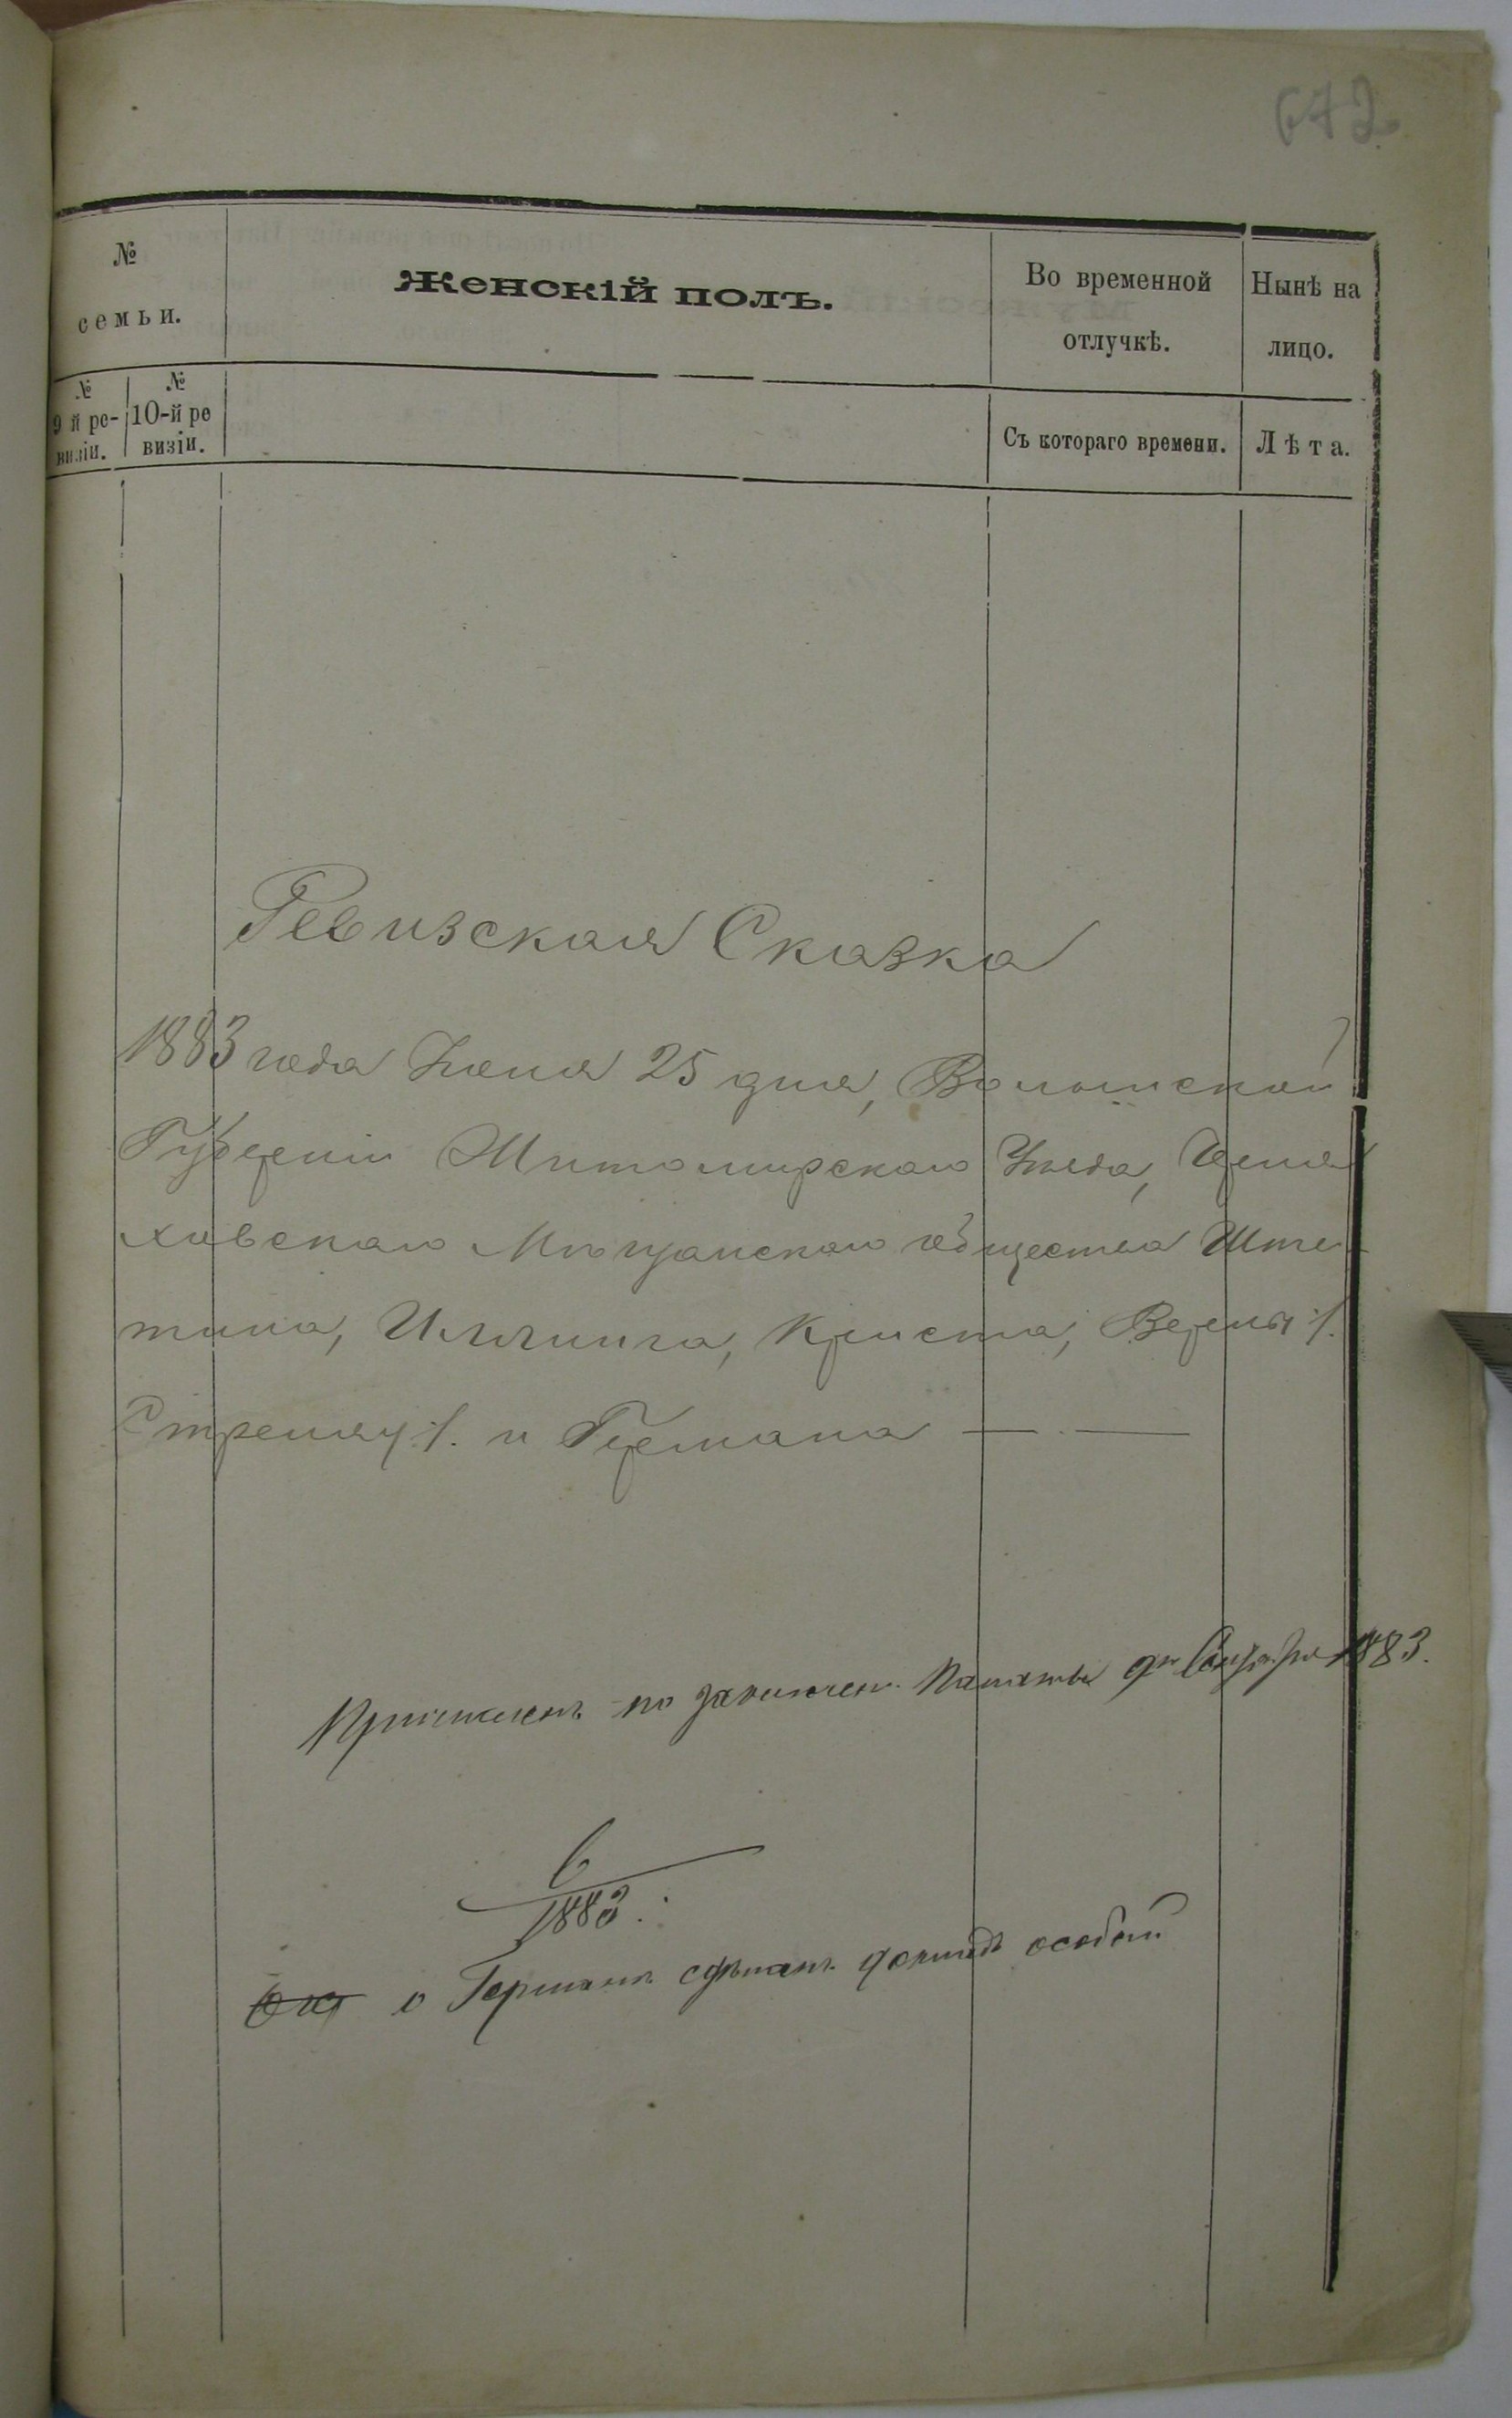 672
№ семьи.
Женскій полъ.
Во временной отлучкѣ.
Нынѣ на лицо.
№ 9 й ре-визіи.
№ 10-й ре визіи.
Съ котораго времени.
Лѣта.
Ревизская Сказка
1883 года Іюня 25 дня, Волынской
Губерніи Житомирскаго Уѣзда, Черня
ховскаго Мѣщанскаго общества Ште-
тина, Иллинга, Криста, Верны 1.
Стреляу 1. и Германа
по заключен. Палаты 1883.
6
1883.
о Германѣ сдѣланъ докладъ особый